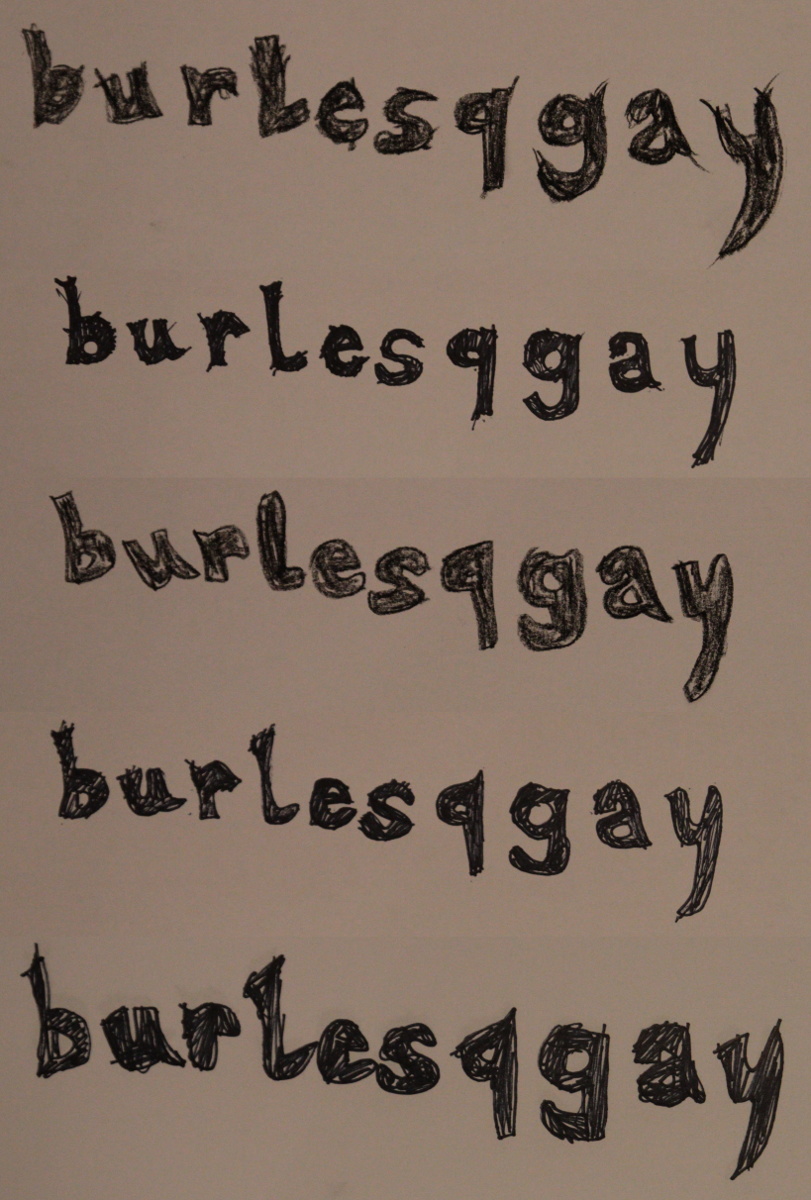 burlesqgay
burlesqgay
burlesqgay
burlesqgay
burlesqgay